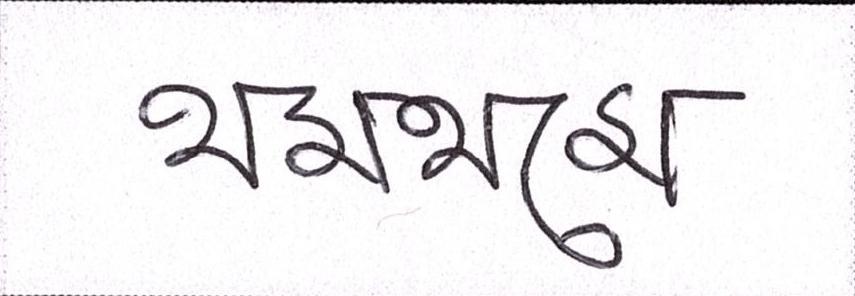 থমথমে